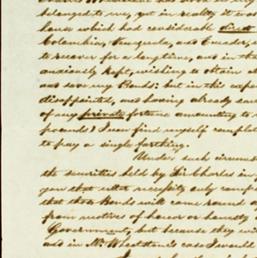 belonged to me, yet in reality it was
house which had considerable direct
Columbian, Venezuela, and Ecuador,
to recover for a long time, and in th
anxiously kept, wishing to obtain a
and save my Bonds; but in this expe
disappointed, and having already sac
of my private fortune amounting to
pounds I now find myself complete
to pay a single farthing.
Under such circums
the securities held by Sir Charles in
you that utter necessity only comp
that those Bonds will come round
from motives of honor or honesty
Government, but because they wi
and in Mr Wheatstone's case I would